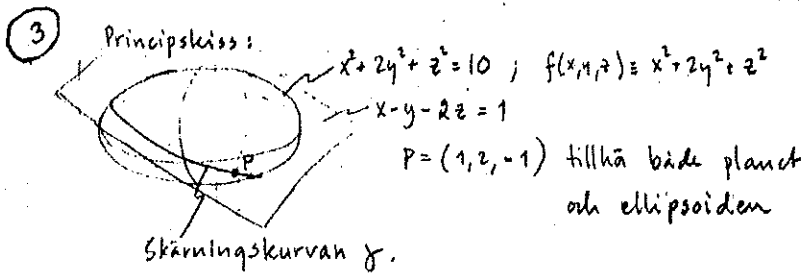 3 Principskiss:
x²+2y²+z²=10 ; f(x,y,z) ≡ x²+2y²+z²
x-y-2z=1
P
P=(1,2,-1) tillhä både planet
och ellipsoiden
Skärningskurvan γ.